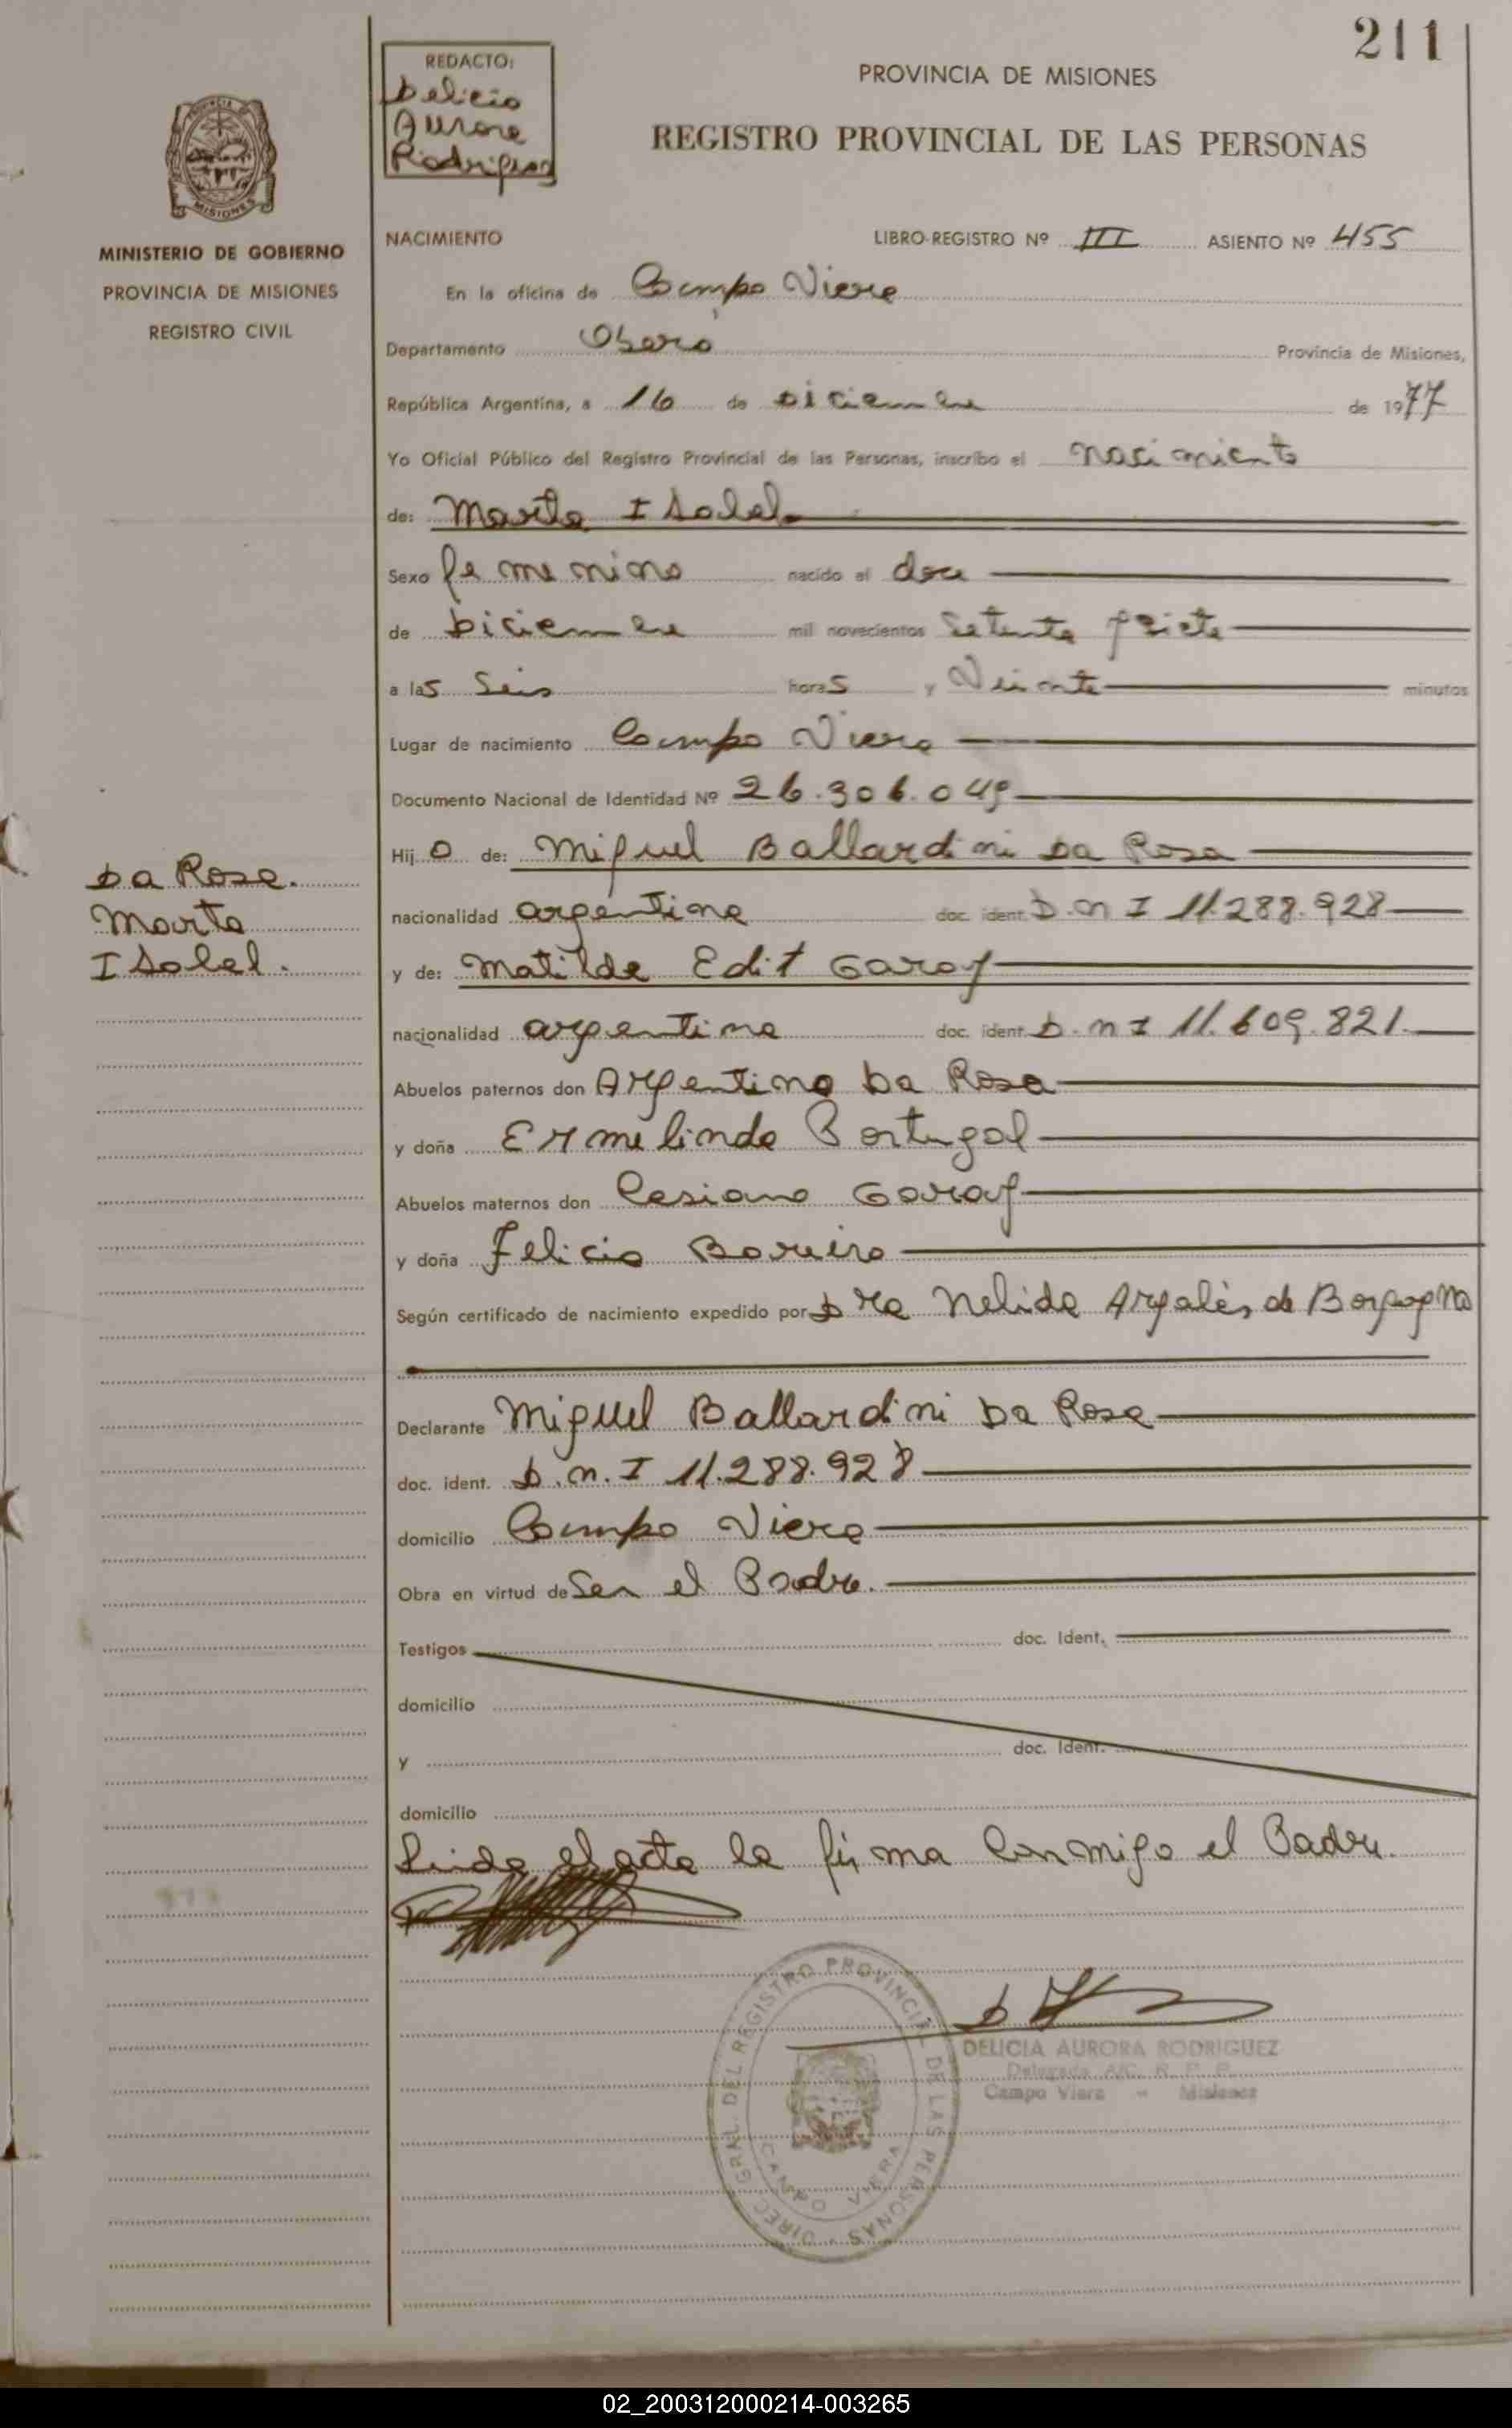 211
REDACTO:
Delicia
Aurora
Rodriguez
PROVINCIA DE MISIONES
REGISTRO PROVINCIAL DE LAS PERSONAS
PROVINCIA DE
MISIONES
MINISTERIO DE GOBIERNO
PROVINCIA DE MISIONES
REGISTRO CIVIL
NACIMIENTO LIBRO-REGISTRO Nº III ASIENTO Nº 455
En la oficina de Campo Viera
Departamento Oberá Provincia de Misiones,
República Argentina, a 16 de Diciembre de 1977
Yo Oficial Público del Registro Provincial de las Personas, inscribo el nacimiento
de: Marta Isabel
Sexo femenino nacido el doce
de Diciembre mil novecientos Setenta y siete
a las Seis horas y Veinte minutos
Lugar de nacimiento Campo Viera
Documento Nacional de Identidad Nº 26.306.049
Hij o de: Miguel Ballardini Da Rosa
nacionalidad argentina doc. ident. D.n I 11.288.928
y de: Matilde Edit Garay
nacionalidad argentina doc. ident. D.n I 11.609.821.
Abuelos paternos don Argentino Da Rosa
y doña Ermelinda Portugal
Abuelos maternos don Casiano Garay
y doña Felicia
Según certificado de nacimiento expedido por Dra Nelida de
Declarante Miguel Ballardini Da Rosa
doc. ident. D.n.I 11.288.928
domicilio Campo Viera
Obra en virtud de Ser el Padre.
Testigos doc. Ident.
domicilio
y doc. Ident.
domicilio
Leida el acta la firma Conmigo el Padre.
Da Rosa.
Marta
Isabel.
DIREC. GRAL. DEL REGISTRO PROVINCIAL DE LAS PERSONAS
CAMPO VIERA
DELICIA AURORA RODRIGUEZ
Delegada A/C. R. P. P.
Campo Viera - Misiones
02_200312000214-003265